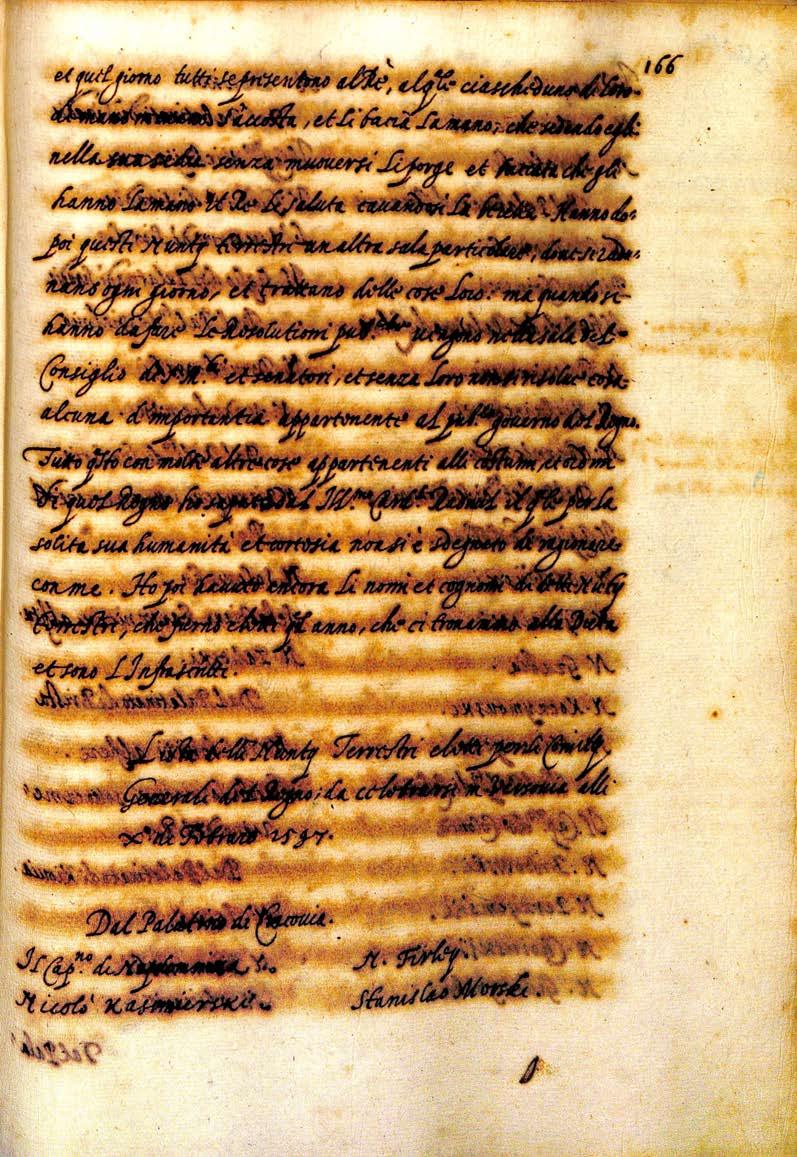 166
et quel giorno tutti se presentono al Rè, al qle ciascheduno di loro
di mano in mano s'accosta, et li bacia la mano, che sedendo egli
nella sua sedia senza muoversi li porge et baciata che gli
hanno la mano il Re li saluta cavandosi la beretta. Hanno do=
poi questi Nuntÿ terrestri un altra sala particolare, dove si radu=
nano ogni giorno, et trattano delle cose loro. ma quando si
hanno da fare le Resolutioni pub.che vengono nella sala del
Consiglio di S. M.tà et senatori, et senza loro non si risolve cosa
alcuna d'importantia appartenente al pub.co governo del Regno.
Tutto qsto con molte altre cose appartenenti alli costumi, et ordini
di quel Regno ho saputo dal Ill.mo Card.l Radivil il qle per la
solita sua humanità et cortesia non si è sdegnato di ragionare
con me. Ho poi havuto ancora li nomi et cognomi di detti Nuntÿ
terrestri, che furno eletti ql anno, che ci trovammo alla Dieta
et sono l'Infrascritti.
Lista delli Nuntÿ Terrestri eletti per li Comitÿ
Generali del Regno, da celebrarsi in Varsovia alli
X. di Febraro 1597.
Dal Palatino di Cracovia.
Il Cap.no di
N. Firley
Nicolò Kasimierski.
Stanislao Morski.